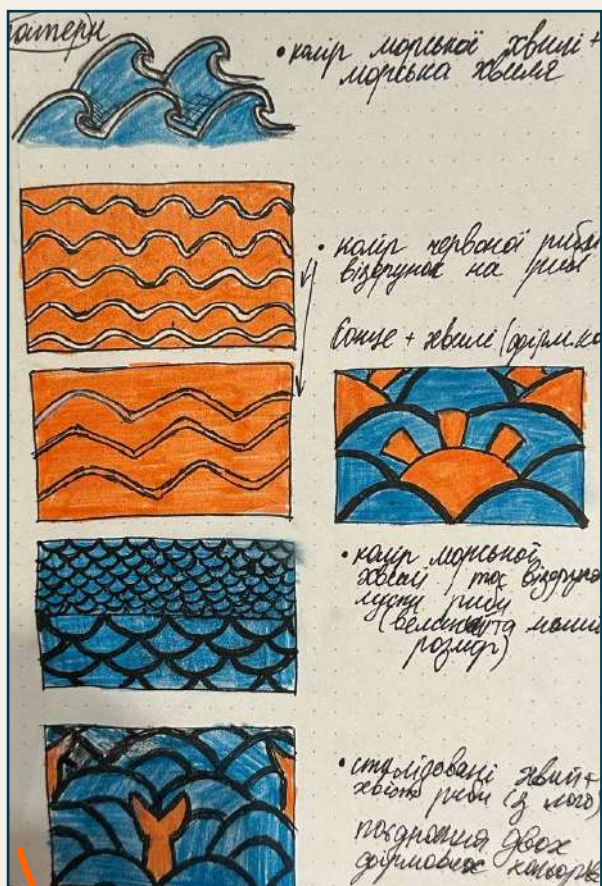 патерн
• колір морської хвилі +
морська хвиля
• колір червоної риби
візерунок на рибі
Сонце + хвилі (фірм. ко
• колір морської
хвилі та візеруно
луски риби
(велика та
розмір)
• стилізовані хвилі +
хвіст риби (з лого)
поєднання двох
фірмових кольорів